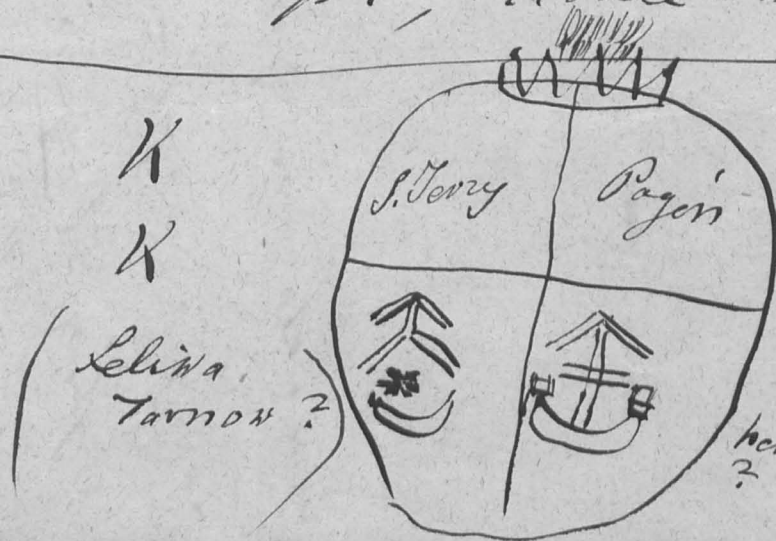 K
K
S. Jerzy
Pogoń
Leliwa
Tarnow ?
?